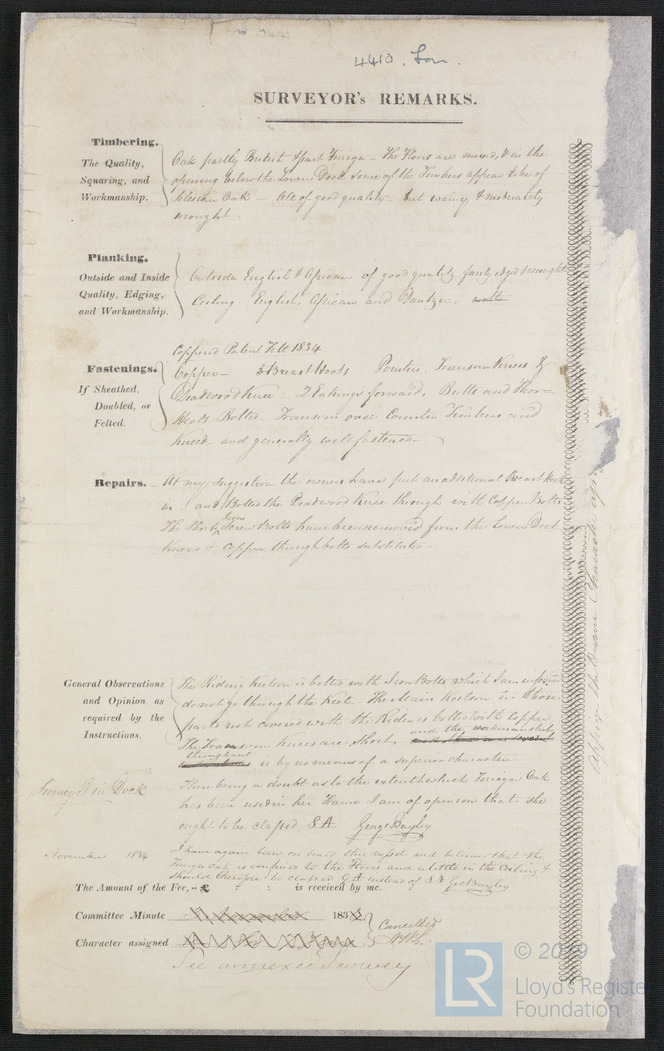 4410. Lon.
SURVEYOR's REMARKS.
Timbering.
The Quality,
Squaring, and
Workmanship.
Oak partly British & part Foreign – The Floors are mixed, & in the
opening below the Lower Deck some of the Timbers appear to be of
Silesian Oak — All of good quality – but waney & moderately
wrought
Planking.
Outside and Inside
Quality, Edging,
and Workmanship.
Outside English & African of good quality fairly edged & wrought
Ceiling English, African and Dantzic.
Fastenings.
If Sheathed,
Doubled, or
Felted.
Coppered Patent Felt 1834
Copper – 5 Breast Hooks Pointers Transom Knees &
Deadwood Knee – 2 forwards, Butts and
Bolted Transom over Counter Timbers and
Kneed and generally well fastened
Repairs.
At my suggestion the owners have put an additional Breast Hook
in and Bolted the Deadwood Knee through with Copper Bolts
The Short Iron Screw Bolts have been removed from the Lower Deck
Knees & Copper through bolts substituted
General Observations
and Opinion as
required by the
Instructions.
The Riding Keelson is bolted with Iron Bolts which I am informed
do not go through the Keel. The Main Keelson in those
parts not covered with the Rider is bolted with Copper
The Transom Knees are Short, and the workmanship
throughout is by no means of a superior character
Surveyed in Dock
There being a doubt as to the extent to which Foreign Oak
has been used in her Frame I am of opinion that she
ought to be classed 8 A. George Bayley
November 1834
I have again been on board this vessel and believe that the
Foreign Oak is confined to the Floors and a little in the Ceiling &
should therefore be classed 9 A instead of 8 A Geo Bayley
The Amount of the Fee, : : is received by me.
Committee Minute 183
Character assigned
Cancelled
See annexed Survey
© 2019
LR
Lloyd's Register
Foundation